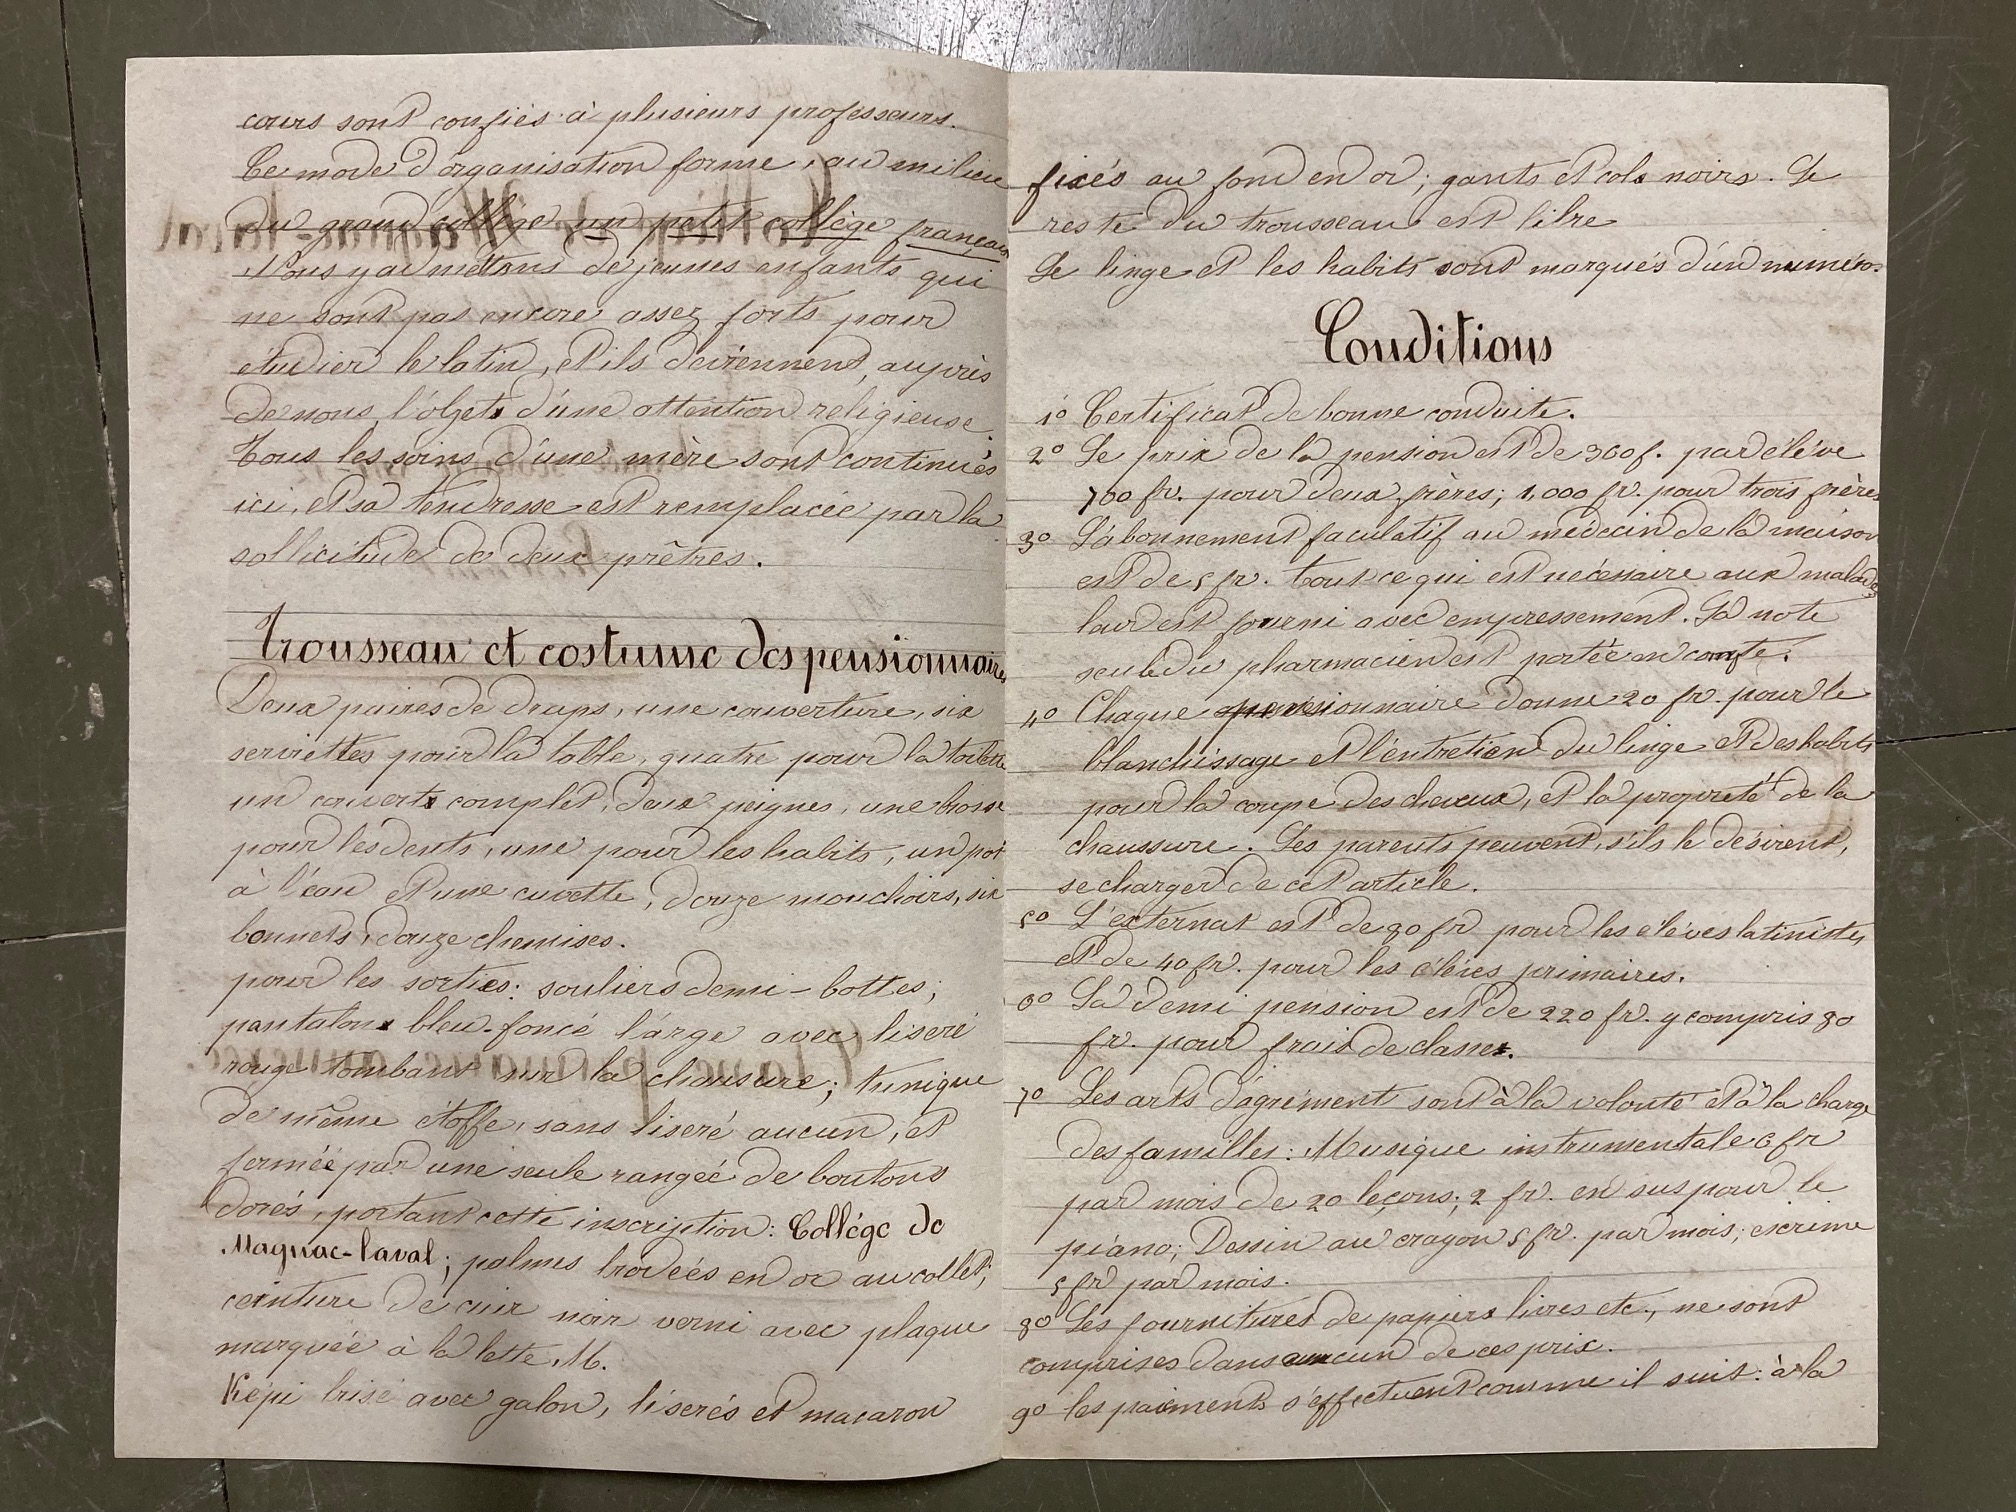 cours sont confiés à plusieurs professeurs.
Ce mode d'organisation forme, au milieu
du grand collège un petit collège français
Nous y admettons de jeunes enfants qui
ne sont pas encore assez forts pour
étudier le latin, et ils deviennent, auprès
de nous, l'objet d'une attention religieuse.
Tous les soins d'une mère sont continués
ici, et sa tendresse est remplacée par la
sollicitude de deux prêtres.
Trousseau et costume des pensionnaires
Deux paires de draps, une couverture, six
serviettes pour la table, quatre pour la toilette
un couvert complet, deux peignes, une brosse
pour les dents, une pour les habits, un pot
à l'eau et une cuvette, douze mouchoirs, six
bonnets, douze chemises.
pour les sorties: souliers demi-bottes;
pantalon bleu-foncé large avec liseré
rouge tombant sur la chaussure; tunique
de même étoffe, sans liseré aucun, et
fermée par une seule rangée de boutons
dorés, portant cette inscription: Collége de
Magnac-laval; palmes brodées en or au collet;
ceinture de cuir noir verni avec plaque
marquée à la lette M.
Képi brisé avec galon, liserés et macaron
fixés au fond en or; gants et cols noirs. Le
reste du trousseau est libre
Le linge et les habits sont marqués d'un numéro.
Conditions
1º Certificat de bonne conduite.
2º Le prix de la pension est de 360 f. par élève
700 fr. pour deux frères; 1,000 fr. pour trois frères
3º L'abonnement facultatif au médecin de la maison
est de 5 fr. tout ce qui est nécessaire aux malades
leur est fourni avec empressement. La note
seule du pharmacien est portée en compte.
4º Chaque pensionnaire donne 20 fr. pour le
blanchissage et l'entretien du linge et des habits
pour la coupe des cheveux, et la propreté de la
chaussure. Les parents peuvent, s'ils le désirent,
se charger de cet article.
5º L'externat est de 80 fr pour les élèves latinistes
et de 40 fr. pour les élèves primaires.
6º La demi pension est de 220 fr. y compris 80
fr. pour frais de classe.
7º Les arts d'agrément sont à la volonté et à la charge
des familles: Musique instrumentale 6 fr
par mois de 20 leçons; 2 fr. en sus pour le
piano; Dessin au crayon 5 fr. par mois; escrime
5 fr par mois.
8º Les fournitures de papiers livres etc., ne sont
comprises dans aucun de ces prix.
9º les paiements s'effectuent comme il suit: à la